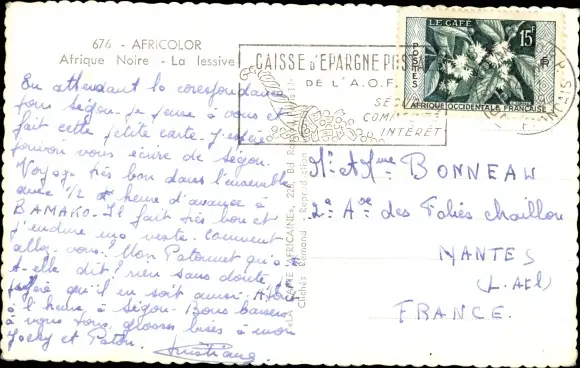 676 - AFRICOLOR
Afrique Noire - La lessive
CAISSE D'EPARGNE POS
DE L'A.O.F.
SEC
COM
INTÉRÊT
LE CAFÉ
15F
POSTES
RF
AFRIQUE OCCIDENTALE FRANÇAISE
En attendant la correspondance
pour Ségou. Je pense à vous et
fait cette petite carte. J'espère
pouvoir vous écrire de Ségou.
Voyage très bon dans l'ensemble
avec 1/2 heure d'avance à
BAMAKO. Il fait très bon et
j'endure ma veste. Comment
allez-vous? Mon Patounet qu'a
t-elle dit? rien sans doute,
qu'il en soit ainsi. A
à l'heure à Ségou. Bons baisers
à vous tous, grosses bises à mon
Jocky et Patou.
Christiane
"LA CARTE AFRICAINE", 22, Bd
Clichés Rémond - Reproduction
Mr et Mme BONNEAU
2e Ave des Folies Chaillou
NANTES
(L. Atl)
FRANCE.